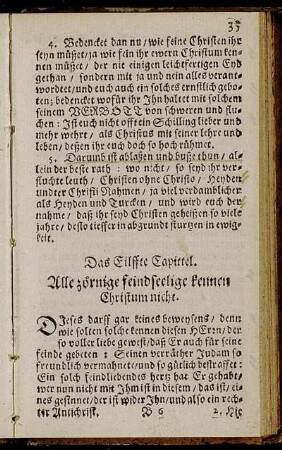 35
4. Bedencket dan nu / wie feine Christen ihr
seyn müßet / ja wie fein ihr ewern Christum ken-
nen müßet / der nie einigen leichtfertigen Eyd
gethan / sondern mit ja und nein alles verant-
wordtet / und euch auch ein solches ernstlich gebo-
ten; bedencket wofür ihr Ihn haltet mit solchem
seinem VERBOTT von schweren und flu-
chen: Ist euch nicht offt ein Schilling lieber und
mehr wehrt / als Christus mit seiner lehre und
leben / deßen ihr euch doch so hoch rühmet.
5. Darumb ist ablaßen und buße thun / al-
lein der beste rath: wo nicht / so seyd ihr ver-
fluchte leuth / Christen ohne Christo / Heyden
undter Christi Nahmen / ja viel verdamblicher
als Heyden und Turcken / und wird euch der
nahme / daß ihr seyd Christen geheißen so viele
jahre / desto tieffer in abgrundt sturtzen in ewig-
keit.
Das Eilffte Capittel.
Alle zörnige feindseelige kennen
Christum nicht.
DIeses darff gar keines beweysens / denn
wie solten solche kennen diesen HErrn / der
so voller liebe gewest / daß Er auch für seine
feinde gebeten: Seinen verräther Judam so
freundlich vermahnete / und so gütlich bestraffet:
Ein solch feindliebendes hertz hat Er gehabt /
wer nun nicht mit Ihm ist in diesem / das ist / ei-
nes gesinnet / der ist wider Ihn / und also ein rech-
ter Antichrist. B 6 2. Hie